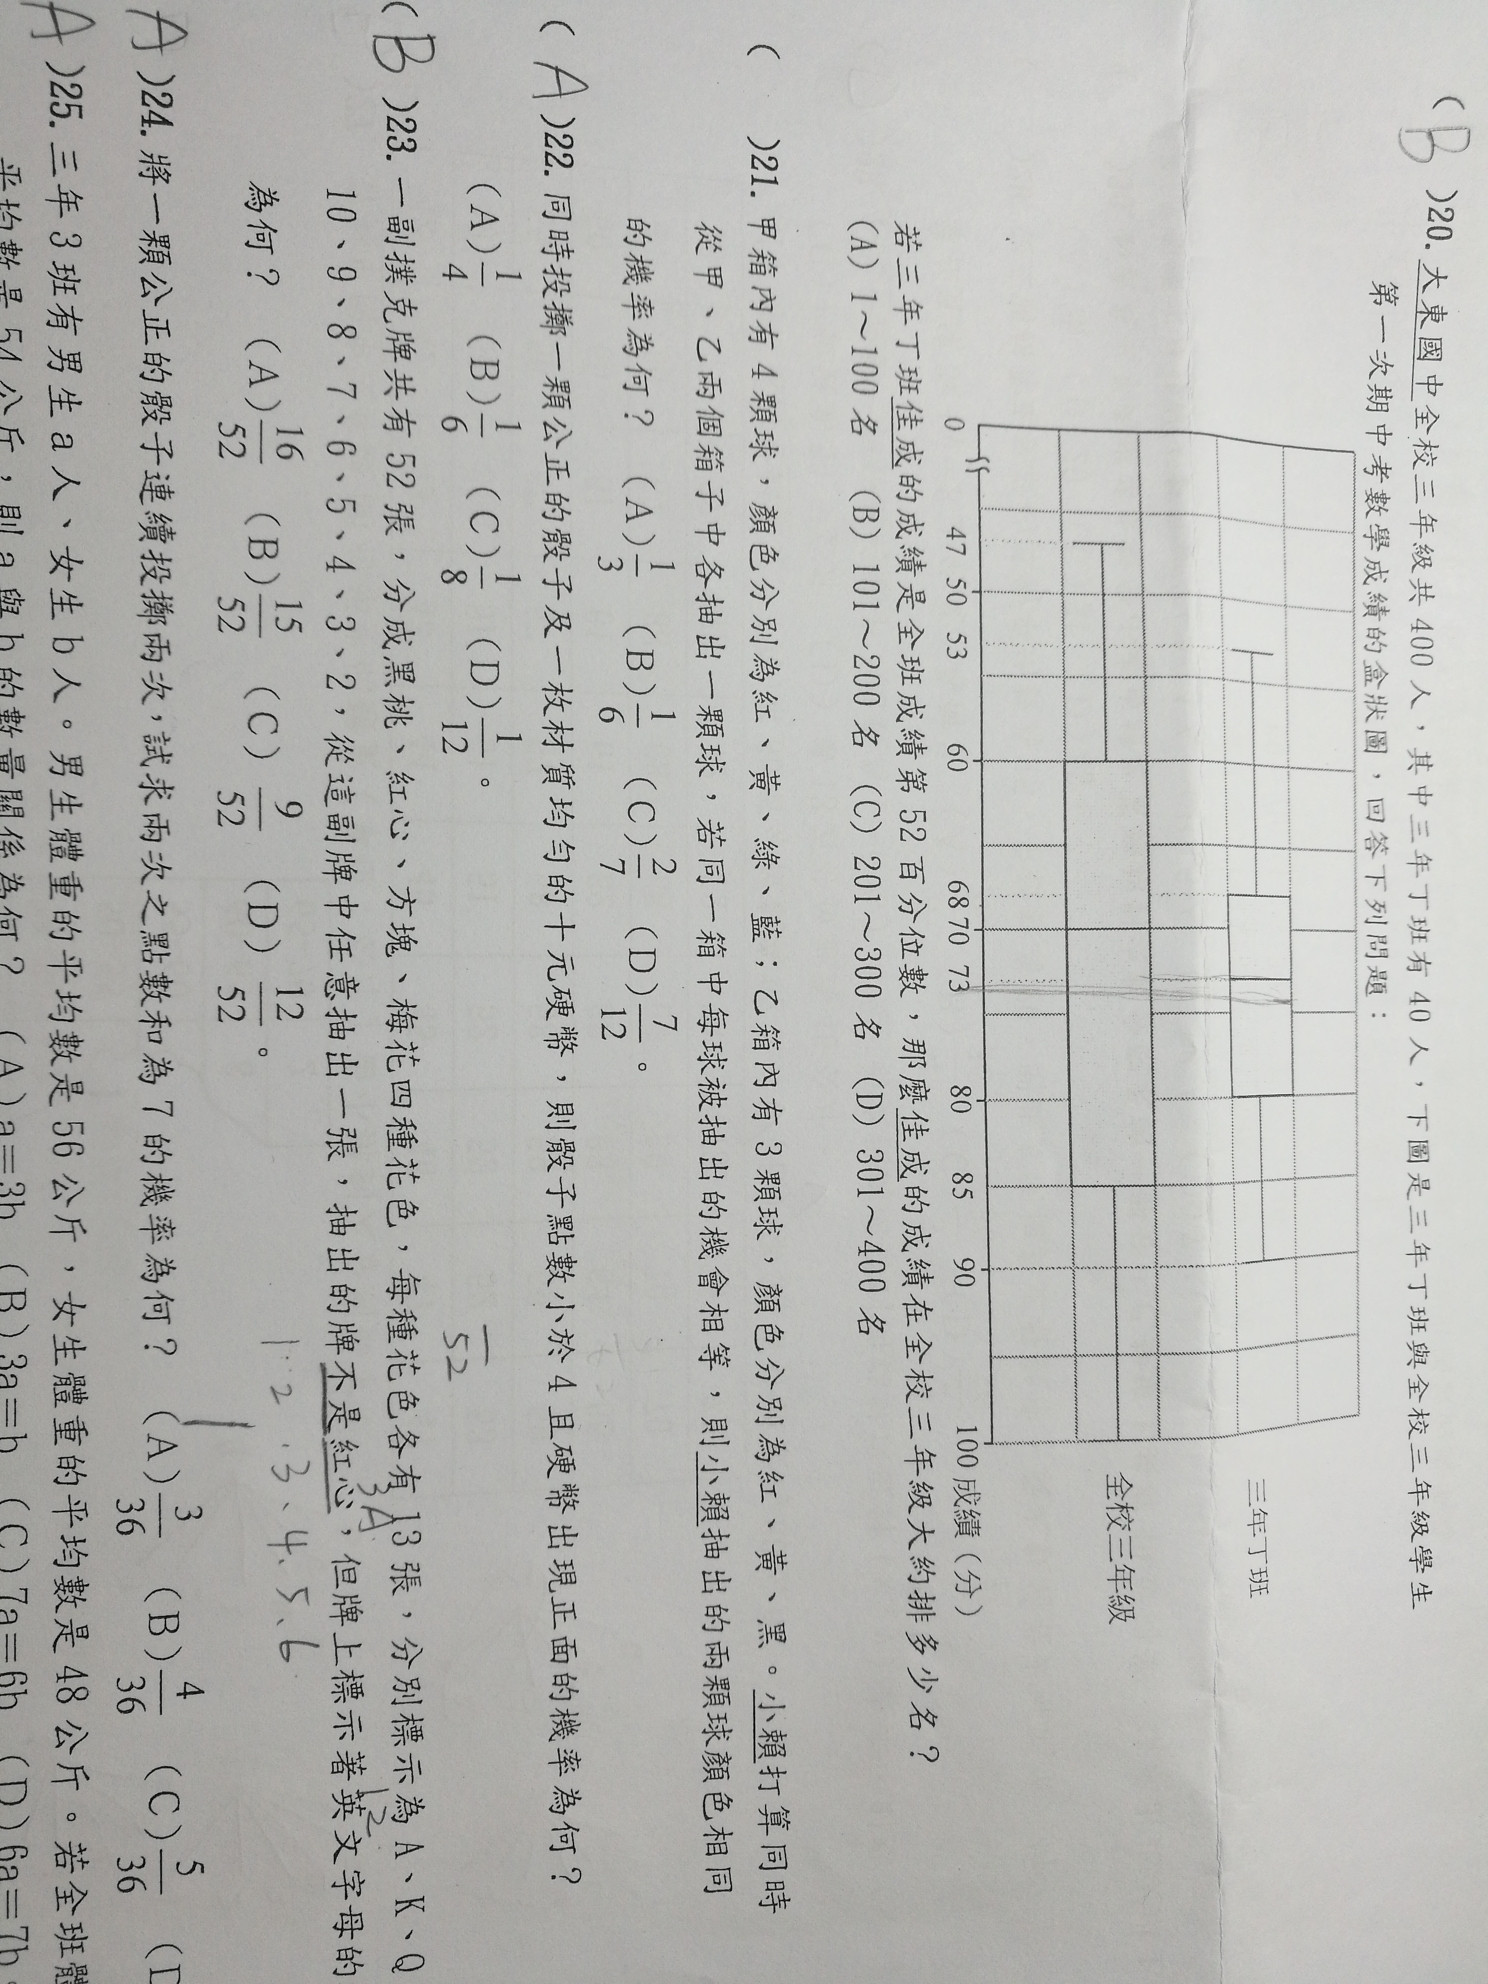 ( B )20.大東國中全校三年級共400人，其中三年丁班有40人，下圖是三年丁班與全校三年級學生
第一次期中考數學成績的盒狀圖，回答下列問題：
三年丁班
全校三年級
0 47 50 53 60 68 70 73 80 85 90 100 成績(分)
若三年丁班佳成的成績是全班成績第52百分位數，那麼佳成的成績在全校三年級大約排多少名？
(A) 1～100名 (B) 101～200名 (C) 201～300名 (D) 301～400名
( )21.甲箱內有4顆球，顏色分別為紅、黃、綠、藍；乙箱內有3顆球，顏色分別為紅、黃、黑。小賴打算同時
從甲、乙兩個箱子中各抽出一顆球，若同一箱中每球被抽出的機會相等，則小賴抽出的兩顆球顏色相同
的機率為何？ (A) 1/3 (B) 1/6 (C) 2/7 (D) 7/12 。
( A )22.同時投擲一顆公正的骰子及一枚材質均勻的十元硬幣，則骰子點數小於4且硬幣出現正面的機率為何？
(A) 1/4 (B) 1/6 (C) 1/8 (D) 1/12 。
52
( B )23.一副撲克牌共有52張，分成黑桃、紅心、方塊、梅花四種花色，每種花色各有13張，分別標示為A、K、Q
3A
12
10、9、8、7、6、5、4、3、2，從這副牌中任意抽出一張，抽出的牌不是紅心，但牌上標示著英文字母的
為何？ (A) 16/52 (B) 15/52 (C) 9/52 (D) 12/52 。
1.2.3、4、5、6
A )24.將一顆公正的骰子連續投擲兩次，試求兩次之點數和為7的機率為何？ (A) 3/36 (B) 4/36 (C) 5/36 (
A )25.三年3班有男生a人、女生b人。男生體重的平均數是56公斤，女生體重的平均數是48公斤。若全班體
平均數是54公斤，則a與b的數量關係為何？ (A)a=3b (B)3a=b (C)7a=6b (D)6a=7b